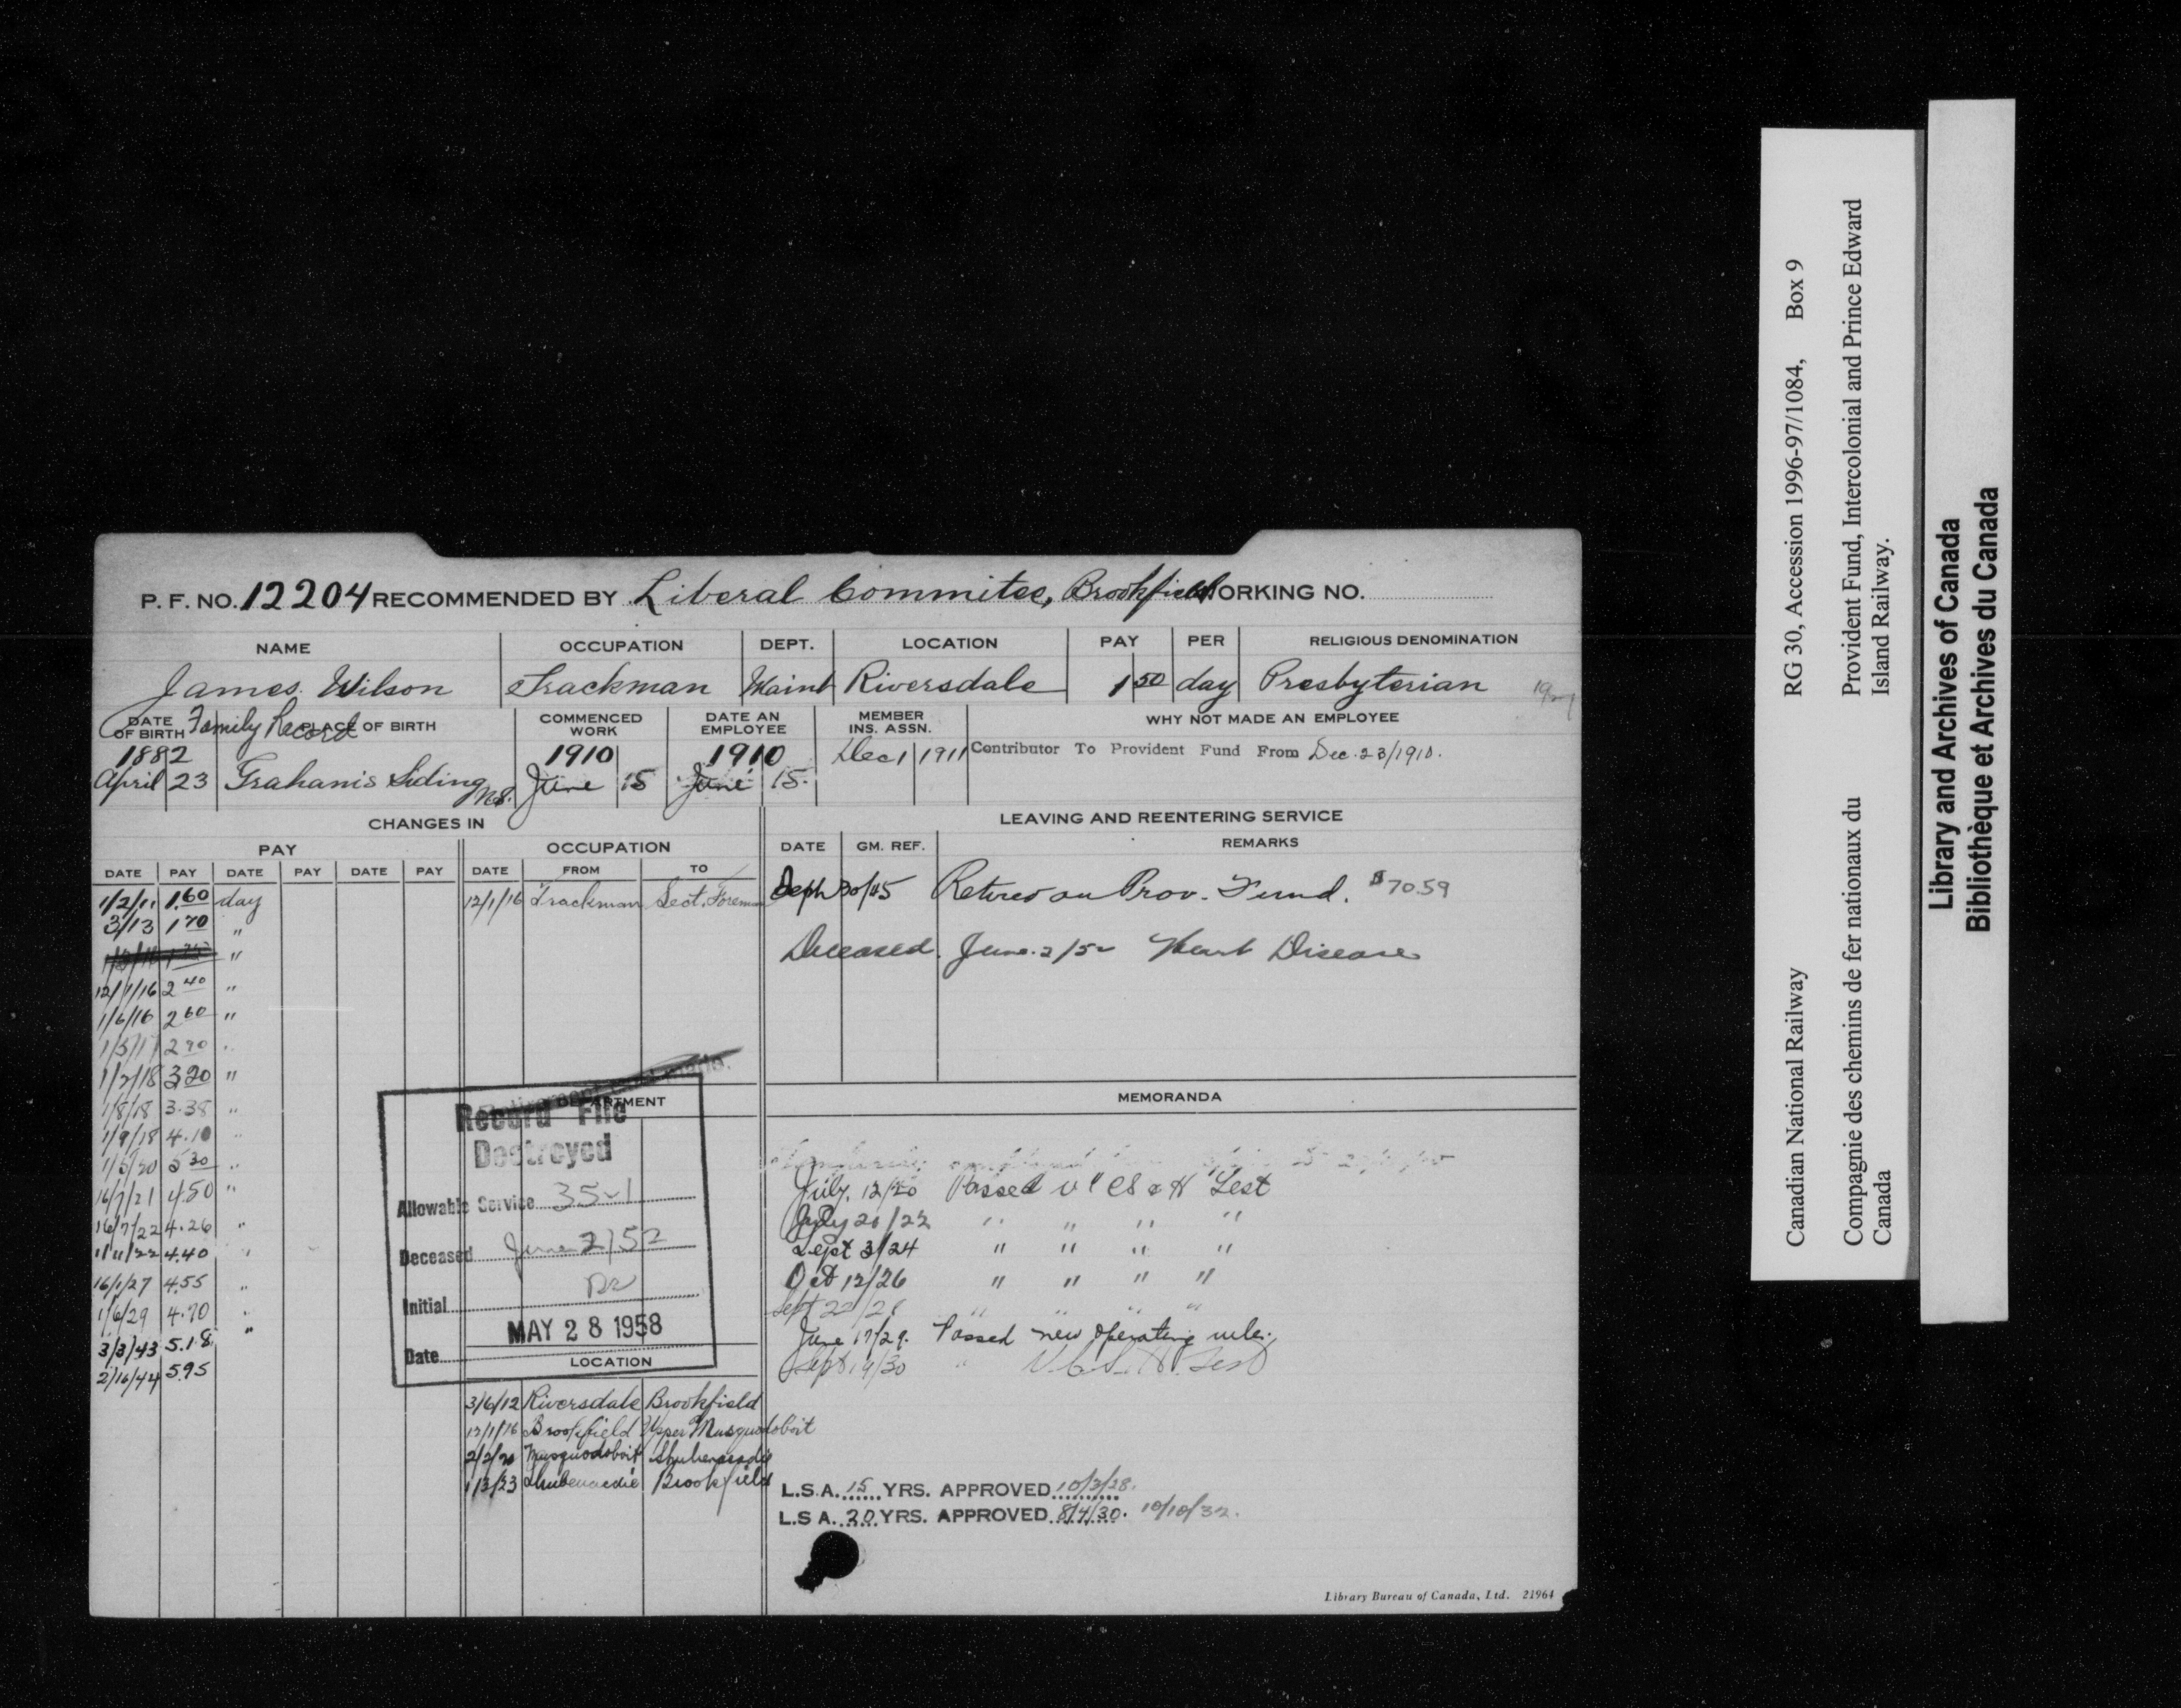 P. F. NO. 12204 RECOMMENDED BY Liberal Commitee, Brookfield WORKING NO.
NAME OCCUPATION DEPT. LOCATION PAY PER RELIGIOUS DENOMINATION
James Wilson Trackman Maint Riversdale 1 50 day Presbyterian
DATE OF BIRTH Family Record PLACE OF BIRTH COMMENCED WORK DATE AN EMPLOYEE MEMBER INS. ASSN. WHY NOT MADE AN EMPLOYEE
1882 1910 1910 Dec 1 1911 Contributor To Provident Fund From Dec. 23/1910.
April 23 Graham's Siding N.S. June 15 June 15.
CHANGES IN
PAY OCCUPATION
DATE PAY DATE PAY DATE PAY DATE FROM TO
1/2/11 1.60 day 12/1/16 Trackman Sect. Foreman
3/13 1 70 "
"
12/1/16 2 40 "
1/6/16 2 60 "
1/5/17 2 90 "
1/2/18 3.20 "
1/8/18 3.38 "
1/9/18 4.10 "
1/5/20 5 30 "
16/7/21 4.50 "
16/7/22 4.26 "
4.40 "
16/1/27 4.55 "
1/6/29 4.70 "
3/3/43 5.18 "
2/16/44 5.95
DEPARTMENT
Record File
Destroyed
Allowable Service
Deceased June 2/52
Initial
MAY 28 1958
Date
LOCATION
3/6/12 Riversdale Brookfield
12/1/16 Brookfield Upper Musquodoboit
2/2/20 Musquodoboit Shubenacadie
1/3/23 Shubenacadie Brookfield
LEAVING AND REENTERING SERVICE
DATE GM. REF. REMARKS
Sept 30/45 Retired on Prov. Fund. $70.59
Deceased June 2/52 Heart Disease
MEMORANDA
July. 12/20 Passed V C S & H Test
July 20/22 " " " "
Sept 3/24 " " " "
Oct 12/26 " " " "
Sept 22/28 " " " "
June 17/29. Passed new operating rules.
Sept 19/30 " V.C.S.H. Test
L.S.A. 15 YRS. APPROVED 10/3/28.
L.S A. 20 YRS. APPROVED 8/4/30. 10/10/32.
Library Bureau of Canada, Ltd. 21964
Canadian National Railway RG 30, Accession 1996-97/1084, Box 9
Compagnie des chemins de fer nationaux du Canada
Provident Fund, Intercolonial and Prince Edward Island Railway.
Library and Archives of Canada
Bibliothèque et Archives du Canada